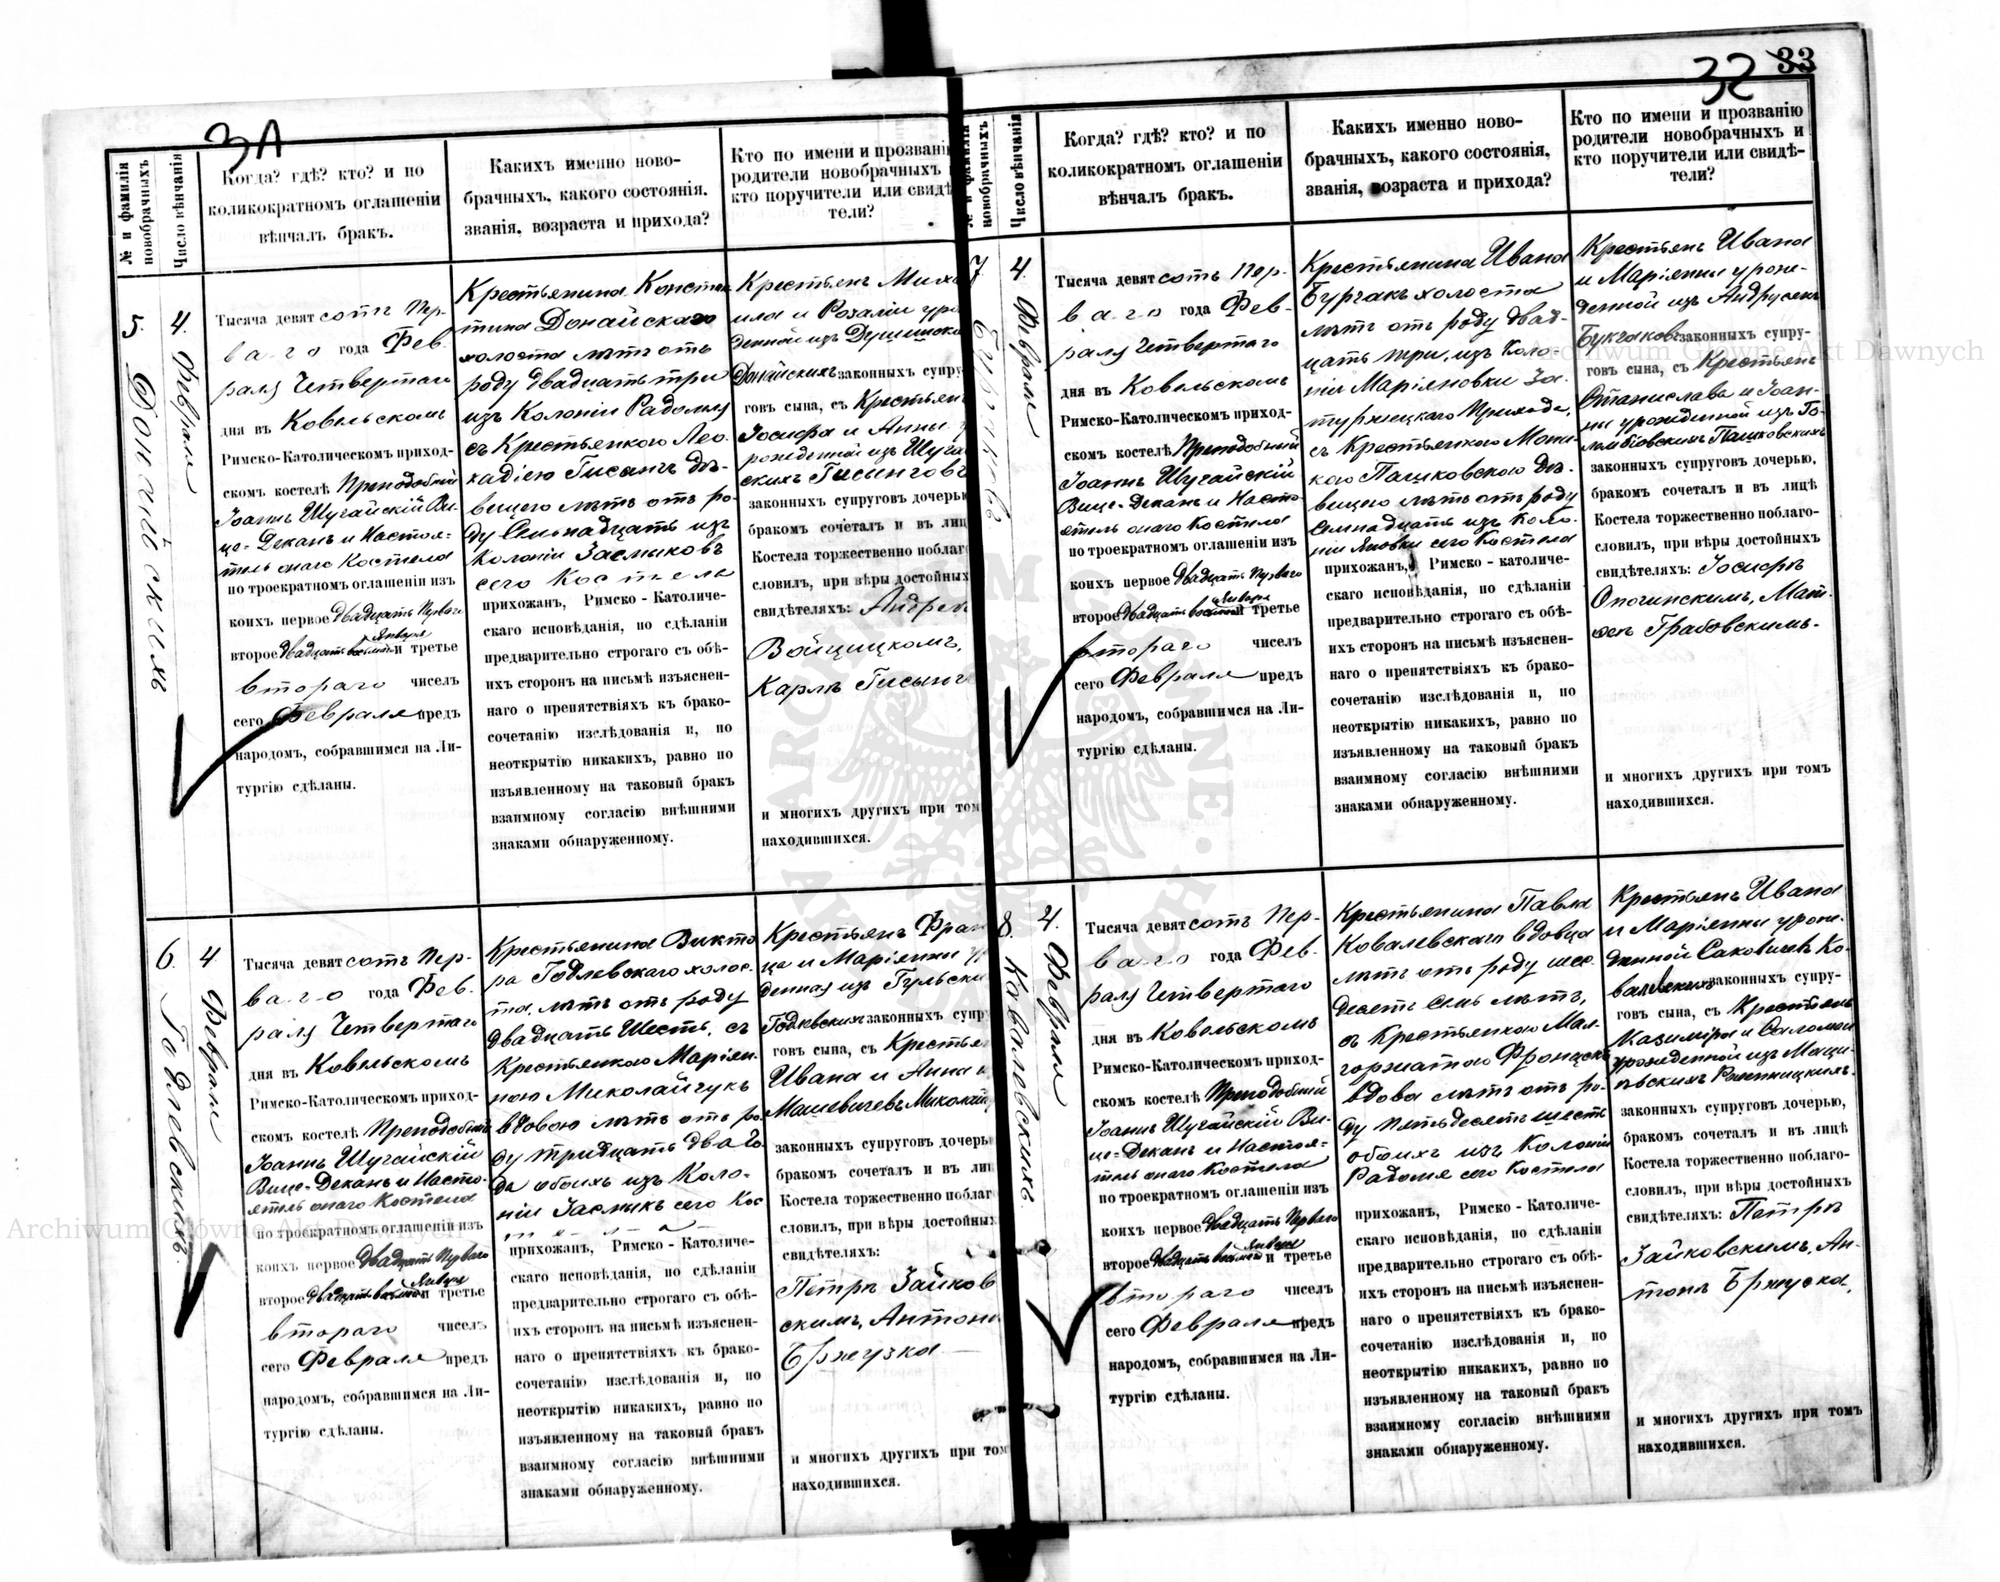 33
32
ЗА
№ и фамилія новобрачныхъ
Число вѣнчанія
Когда? гдѣ? кто? и по
коликократномъ оглашеніи
вѣнчалъ бракъ.
Какихъ именно ново-
брачныхъ, какого состоянія.
званія, возраста и прихода?
Кто по имени и прозванію
родители новобрачныхъ
кто поручители или свидѣ-
тели?
5.
Донайскихъ
4.
Февраля
Тысяча девятсотъ Пер-
ваго года Фев.
раля Четвертаго
дня въ Ковельскомъ
Римско-Католическомъ приход-
скомъ костелѣ Преподобный
Іоаннъ Шучайскій Ви-
це-Деканъ и Настоя-
тель онаго Костела
по троекратномъ оглашеніи изъ
коихъ первое двадцать Перваго
второе двадцать восьмаго Января и третье
втораго чиселъ
сего Февраля предъ
народомъ, собравшимся на Ли-
тургію сдѣланы.
Крестьянина Констан
тина Донайскаго
холоста лѣтъ отъ
роду двадцать три
изъ Колоніи Радомля
съ Крестьянкою Лео-
кадіею Гисингъ дѣ-
вицею лѣтъ отъ ро-
ду Семнадцать изъ
Колоніи Засмыковъ
сего Костела
прихожанъ, Римско - Католиче-
скаго исповѣданія, по сдѣланіи
предварительно строгаго съ обѣ-
ихъ сторонъ на письмѣ изъяснен-
наго о препятствіяхъ къ брако-
сочетанію изслѣдованія и, по
неоткрытію никакихъ, равно по
изъявленному на таковый бракъ
взаимному согласію внѣшними
знаками обнаруженному.
Крестьянъ Миха
ила и Розаліи уро
денной изъ
Донайскихъ законныхъ супру
говъ сына, съ Крестьян
Іосифа и Анны у
рожденной изъ
скихъ Гисинговъ
законныхъ супруговъ дочерью
бракомъ сочеталъ и въ лиц
Костела торжественно поблаг
словилъ, при вѣры достойных
свидѣтеляхъ: Андре
Войцицкомъ,
Карлѣ Гисинг
и многихъ другихъ при том
находившихся.
6.
Годлевскихъ.
4
Февраля
Тысяча девятсотъ Пер-
ваго года Фев.
раля Четвертаго
дня въ Ковельскомъ
Римско-Католическомъ приход-
скомъ костелѣ Преподобный
Іоаннъ Шучайскій
Вице-Деканъ и Насто-
ятель онаго Костела
по троекратномъ оглашеніи изъ
коихъ первое двадцать Перваго
второе двадцать восьмаго Января и третье
втораго чиселъ
сего Февраля предъ
народомъ, собравшимся на Ли-
тургію сдѣланы.
Крестьянина Викто
ра Годлевскаго холос-
та лѣтъ отъ роду
двадцать Шесть, съ
Крестьянкою Маріян-
ною Миколайчукъ
вдовою лѣтъ отъ ро-
ду тридцать два го
да обоихъ изъ Коло-
ніи Засмыкъ сего Кос
прихожанъ, Римско - Католиче-
скаго исповѣданія, по сдѣланіи
предварительно строгаго съ обѣ-
ихъ сторонъ на письмѣ изъяснен-
наго о препятствіяхъ къ брако-
сочетанію изслѣдованія и, по
неоткрытію никакихъ, равно по
изъявленному на таковый бракъ
взаимному согласію внѣшними
знаками обнаруженному.
Крестьянъ Фран
ца и Маріянны у
денная изъ Гульски
Годлевскихъ законныхъ супр
говъ сына, съ Крестья
Ивана и Анна
Мацевичевъ Миколай
законныхъ супруговъ дочерь
бракомъ сочеталъ и въ лиц
Костела торжественно поблаг
словилъ, при вѣры достойных
свидѣтеляхъ:
Петрѣ Зайков
скимъ, Антони
Бржузка
и многихъ другихъ при том
находившихся.
№ и фамилія новобрачныхъ
Число вѣнчанія
Когда? гдѣ? кто? и по
коликократномъ оглашеніи
вѣнчалъ бракъ.
Какихъ именно ново-
брачныхъ, какого состоянія,
званія, возраста и прихода?
Кто по имени и прозванію
родители новобрачныхъ и
кто поручители или свидѣ-
тели?
7
4.
Февраля
Тысяча девятсотъ Пер-
ваго года Фев-
раля Четвертаго
дня въ Ковельскомъ
Римско-Католическомъ приход-
скомъ костелѣ Преподобный
Іоаннъ Шучайскій
Вице-Деканъ и Насто-
ятель онаго Костела
по троекратномъ оглашеніи изъ
коихъ первое двадцать Перваго
второе двадцать восьмаго Января и третье
втораго чиселъ
сего Февраля предъ
народомъ, собравшимся на Ли-
тургію сдѣланы.
Крестьянина Ивана
холоста
лѣтъ отъ роду двад-
цать три, изъ Коло-
ніи Маріяновки За-
турцецкаго Прихода,
съ Крестьянкою Мони-
кою Пашковскою дѣ-
вицею лѣтъ отъ роду
Семнадцать изъ Коло-
ніи Яновки сего Костела
прихожанъ, Римско - католиче-
скаго исповѣданія, по сдѣланіи
предварительно строгаго съ обѣ-
ихъ сторонъ на письмѣ изъяснен-
наго о препятствіяхъ къ брако-
сочетанію изслѣдованія и, по
неоткрытію никакихъ, равно по
изъявленному на таковый бракъ
взаимному согласію внѣшними
знаками обнаруженному.
Крестьянъ Ивана
и Маріянны урож-
денной изъ
законныхъ супру-
говъ сына, съ Крестьянъ
Станислава и Іоан-
ны урожденной изъ Го-
ломбіовскихъ Пашковскихъ
законныхъ супруговъ дочерью,
бракомъ сочеталъ и въ лицѣ
Костела торжественно поблаго-
словилъ, при вѣры достойныхъ
свидѣтеляхъ: Іосифѣ
Опочинскимъ, Мат-
феѣ Грабовскимъ.
и многихъ другихъ при томъ
находившихся.
8.
Ковалевскихъ
4.
Февраля
Тысяча девятсотъ Пер-
ваго года Фев.
раля Четвертаго
дня въ Ковельскомъ
Римско-Католическомъ приход-
скомъ костелѣ Преподобный
Іоаннъ Шучайскій Ви-
це-Деканъ и Настоя-
тель онаго Костела
по троекратномъ оглашеніи изъ
коихъ первое двадцать Перваго
второе двадцать восьмаго Января и третье
втораго чиселъ
сего Февраля предъ
народомъ, собравшимся на Ли-
тургію сдѣланы.
Крестьянина Павла
Ковалевскаго вдовца
лѣтъ отъ роду шес-
десятъ семь лѣтъ,
съ Крестьянкою Мал-
горжатою
вдова лѣтъ отъ ро-
ду пятьдесятъ шесть
обоихъ изъ Колоніи
Радомля сего Костела
прихожанъ, Римско - Католиче-
скаго исповѣданія, по сдѣланіи
предварительно строгаго съ обѣ-
ихъ сторонъ на письмѣ изъяснен-
наго о препятствіяхъ къ брако-
сочетанію изслѣдованія и, по
неоткрытію никакихъ, равно по
изъявленному на таковый бракъ
взаимному согласію внѣшними
знаками обнаруженному.
Крестьянъ Ивана
и Маріянны урож-
денной Саковичъ Ко-
валевскихъ законныхъ супру-
говъ сына, съ Крестьянъ
Казимира и Саломеи
урожденной изъ
законныхъ супруговъ дочерью,
бракомъ сочеталъ и въ лицѣ
Костела торжественно поблаго-
словилъ, при вѣры достойныхъ
свидѣтеляхъ: Петрѣ
Зайковскимъ, Ан-
тонѣ Бржуска,
и многихъ другихъ при томъ
находившихся.
Archiwum Główne Akt Dawnych
Archiwum Główne Akt Dawnych
ARCHIWUM GŁÓWNE AKT DAWNYCH